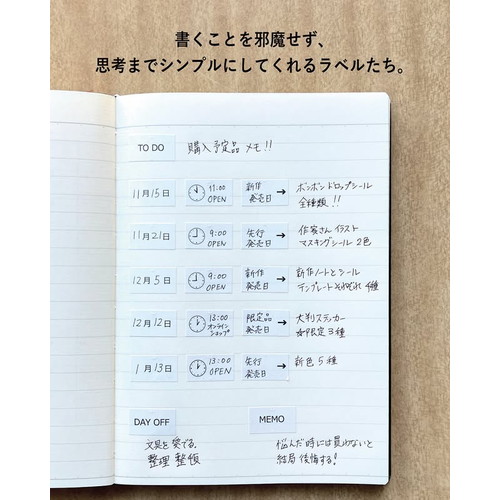 書くことを邪魔せず、
思考までシンプルにしてくれるラベルたち。
TO DO 購入予定品 メモ!!
11月15日 11:00 OPEN 新作 発売日 → ボンボンドロップシール 全種類!!
11月21日 9:00 OPEN 先行 発売日 → 作家さん イラスト マスキングシール 2色
12月5日 9:00 OPEN 新作 発売日 → 新作ノートとシール テンプレート それぞれ 4種
12月12日 13:00 オンライン ショップ 限定品 発売日 → 大判ステッカー ☆限定3種
1月13日 13:00 OPEN 先行 発売日 → 新色5種
DAY OFF MEMO
文具を 悩んだ時には買わないと
整理 整頓 結局 後悔する!